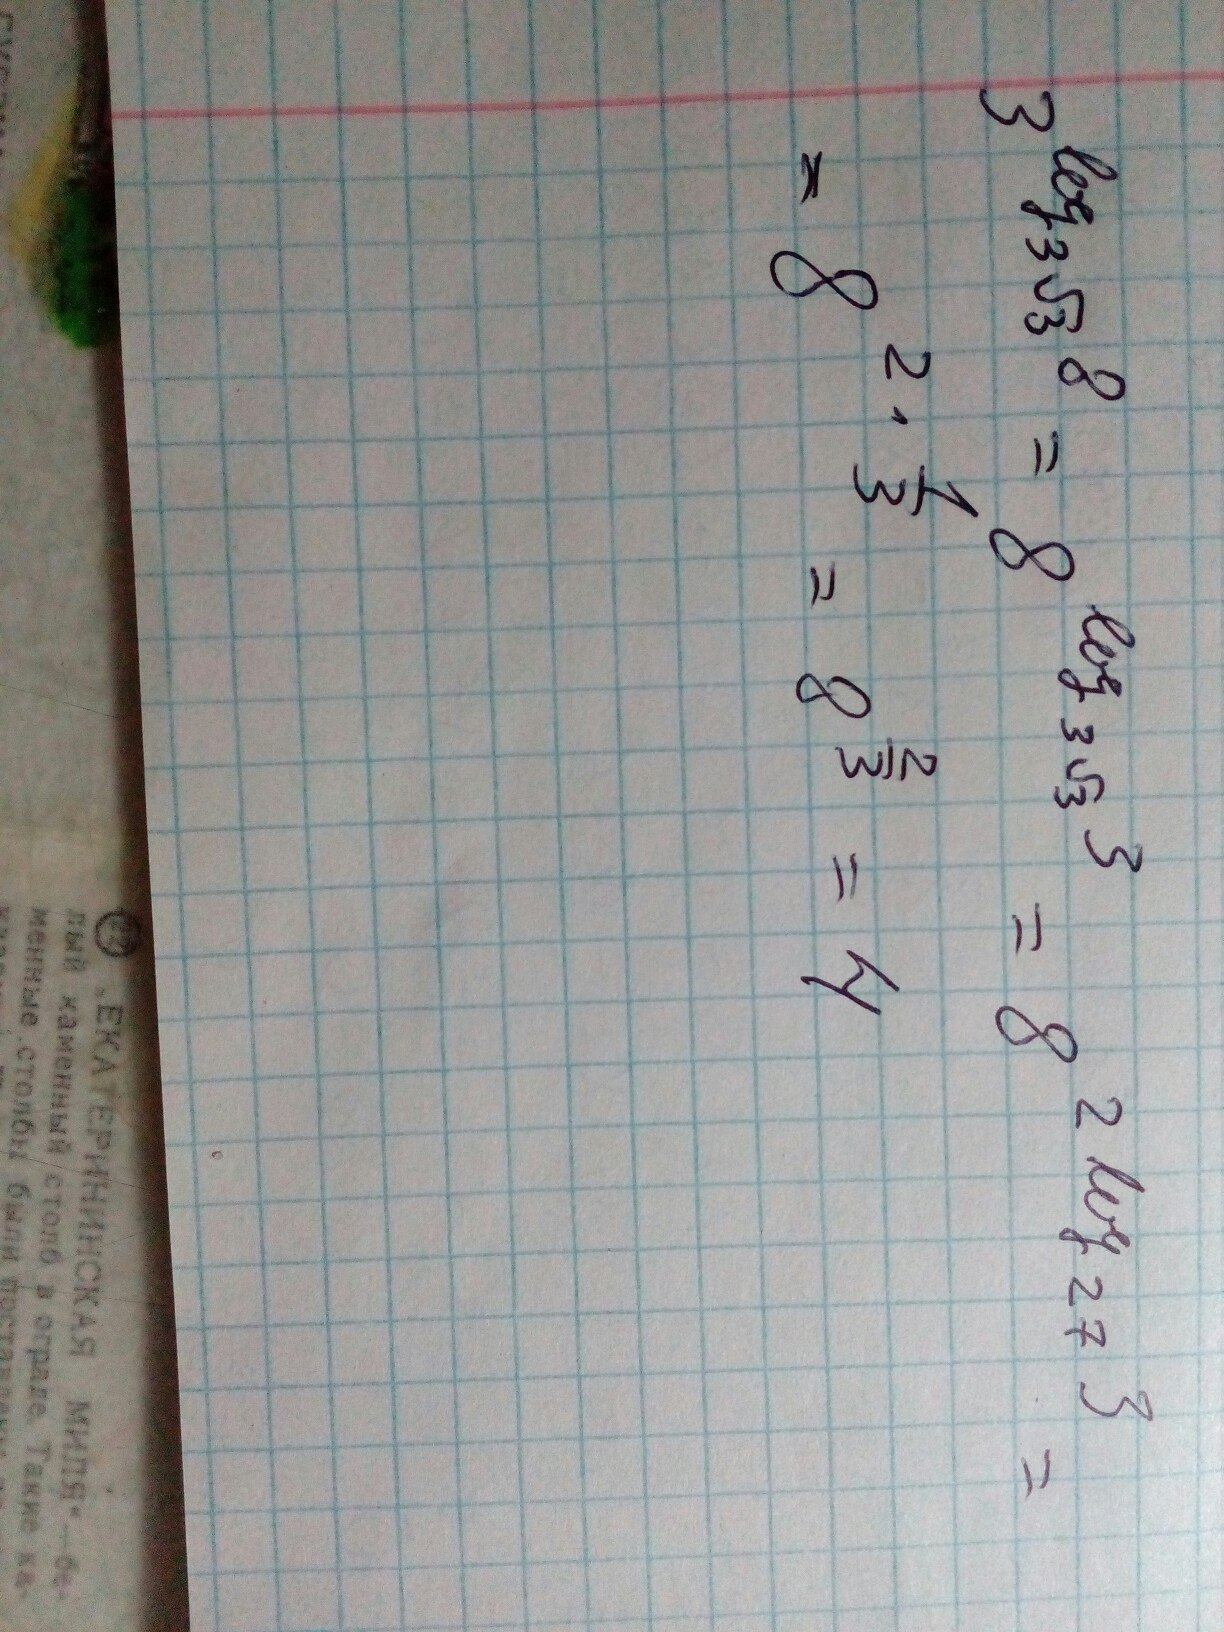 3^{log_{3√3} 8} = 8^{log_{3√3} 3} = 8^{2 log_{27} 3} =
= 8^{2 · 1/3} = 8^{2/3} = 4
„ЕКАТЕРИНИНСКАЯ МИЛЯ“ — бе-
лый каменный столб в ограде. Такие ка-
менные столбы были поставлены